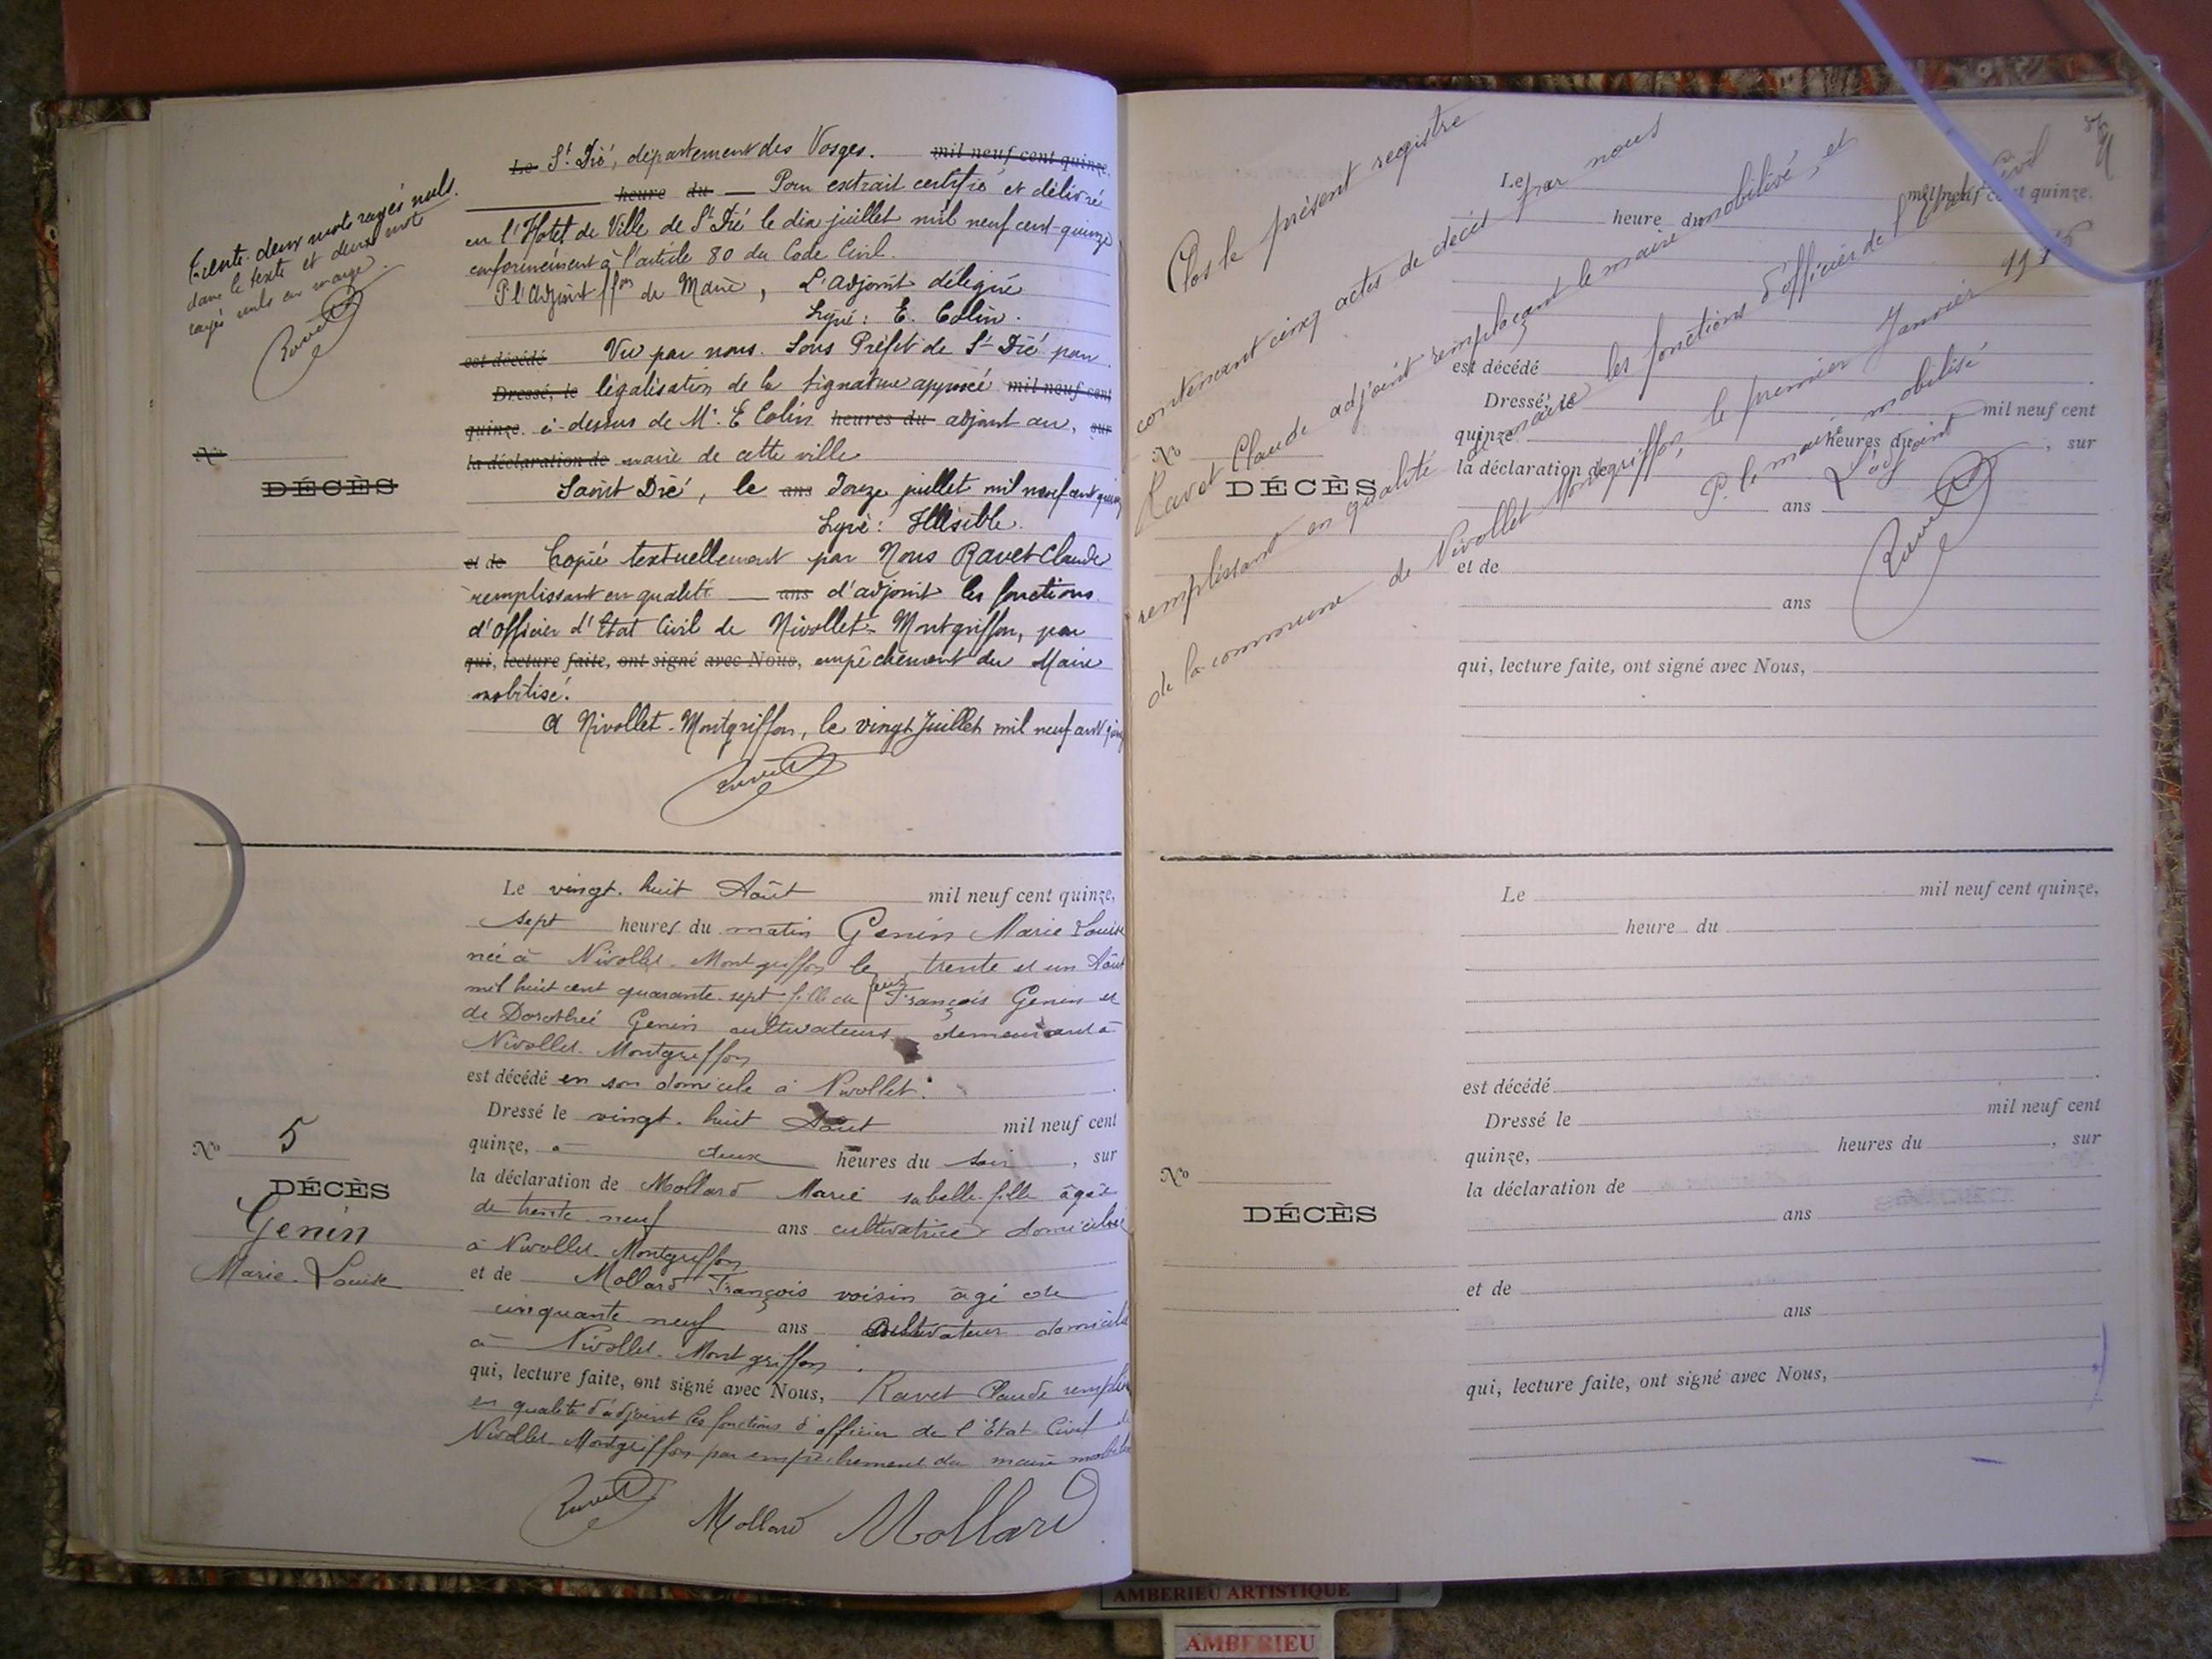 Trente-deux mots rayés nuls
dans le texte et deux mots
rayés nuls en marge.
Ravet
Le St Dié, département des Vosges. mil neuf cent quinze.
heure du — Pour extrait certifié et délivré
en l'Hotel de Ville de St Dié le dix juillet mil neuf cent-quinze
conformément à l'article 80 du Code Civil.
P l'Adjoint ffons de Maire, L'Adjoint délégué
Signé: E. Colin.
est décédé Vu par nous. Sous Préfet de St Dié pour
Dressé, le légalisation de la signature apposée mil neuf cent
quinze. ci-dessus de Mr. E Colin heures du adjoint au, sur
la déclaration de maire de cette ville
Saint Dié, le ans Douze juillet mil neuf cent quinze
Signé: Illisible.
et de Copié textuellement par Nous Ravet Claude
remplissant en qualité — ans d'adjoint les fonctions
d'Officier d'Etat Civil de Nivollet-Montgriffon, par
qui, lecture faite, ont signé avec Nous, empêchement du Maire
mobilisé.
A Nivollet-Montgriffon, le vingt Juillet mil neuf cent quinze
Ravet
No
DÉCÈS
Le vingt-huit Août mil neuf cent quinze,
sept heures du matin Genin Marie Louise
née à Nivollet-Montgriffon le trente et un Août
mil huit cent quarante-sept fille de feu François Genin et
de Dorothée Genin cultivateurs demeurant à
Nivollet-Montgriffon
est décédé en son domicile à Nivollet.
Dressé le vingt-huit Août mil neuf cent
quinze, à deux heures du soir, sur
la déclaration de Mollard Marie sa belle-fille âgée
de trente-neuf ans cultivatrice domiciliée
à Nivollet-Montgriffon
et de Mollard François voisin âgé de
cinquante neuf ans Cultivateur domicilié
à Nivollet-Montgriffon.
qui, lecture faite, ont signé avec Nous, Ravet Claude
en qualité d'adjoint les fonctions d'officier de l'Etat Civil de
Nivollet-Montgriffon par empêchement du maire mobilisé
Ravet Mollard Mollard
No 5
DÉCÈS
Genin
Marie-Louise
Clos le présent registre
contenant cinq actes de décès par nous
Ravet Claude adjoint remplaçant le maire mobilisé, et
remplissant en qualité de maire les fonctions d'officier de l'Etat Civil
de la commune de Nivollet Montgriffon, le premier Janvier 1916
P. le maire mobilisé
L'adjoint
Ravet
Le mil neuf cent quinze.
heure du
est décédé
Dressé, le mil neuf cent
quinze heures du, sur
la déclaration de
ans
et de
ans
qui, lecture faite, ont signé avec Nous,
No
DÉCÈS
Le mil neuf cent quinze,
heure du
est décédé
Dressé le mil neuf cent
quinze, heures du, sur
la déclaration de
ans
et de
ans
qui, lecture faite, ont signé avec Nous,
No
DÉCÈS
AMBERIEU ARTISTIQUE
AMBERIEU